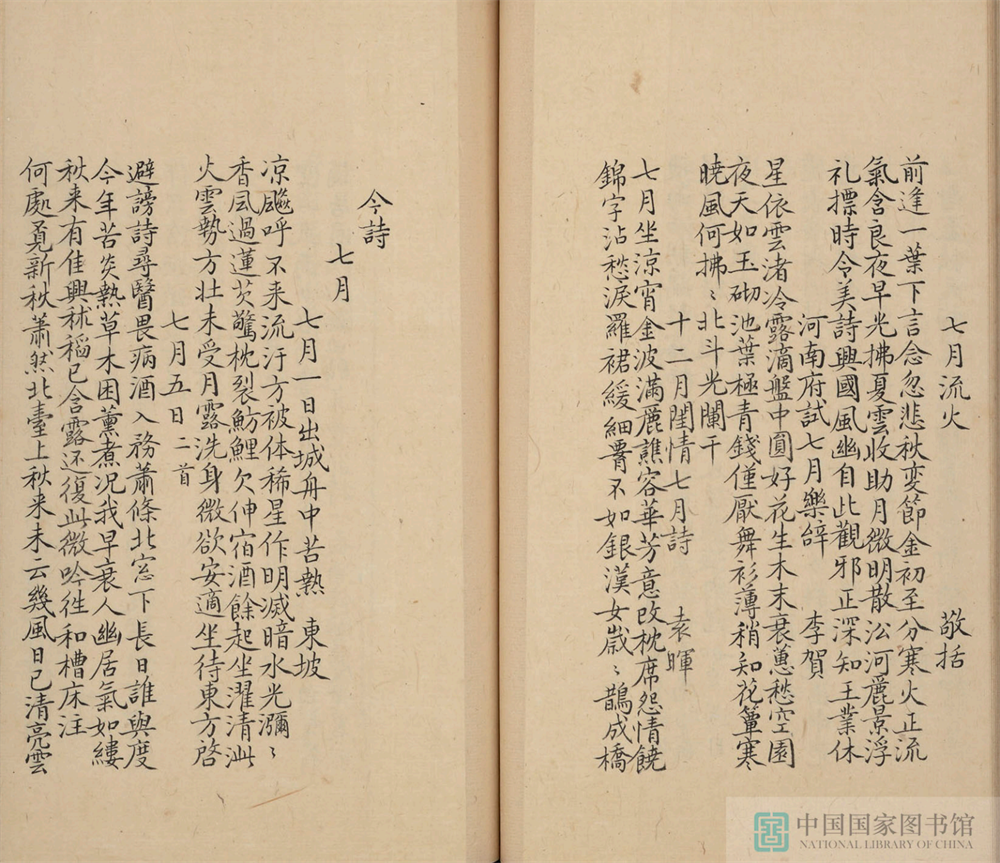 七月流火　敬括
前逢一葉下言念忽悲秋变節金初至分寒火正流
氣含良夜早光拂夏雲收助月微明散㳂河麗景浮
礼摽時令美詩興國風幽自此觀邪正深知王業休
河南府試七月樂辝　李賀
星依雲渚冷露滴盤中圓好花生木末衰蕙愁空園
夜天如玉砌池葉極青錢僅厭舞衫薄稍知花簟寒
曉風何拂〻北斗光闌干
十二月閨情七月詩　袁暉
七月坐涼宵金波滿麗譙容華芳意改枕席怨情饒
錦字沾愁淚羅裙緩細䙅不如銀漢女嵗〻鵲成橋
今詩
七月
七月一日出城舟中苦熱　東坡
凉飇呼不来流汙方被体稀星作明滅暗水光瀰〻
香風過蓮芡驚枕裂魴鯉欠伸宿酒餘起坐濯清泚
火雲勢方壮未受月露洗身微欲安適坐待東方啓
七月五日二首
避謗詩尋醫畏病酒入務蕭條北窓下長日誰與度
今年苦炎熱草木困薰煮况我早衰人幽居氣如縷
秋来有佳興秫稻已含露还復此微吟徃和槽床注
何處覓新秋蕭然北臺上秋来未云幾風日已清亮雲
中国国家图书馆
NATIONAL LIBRARY OF CHINA